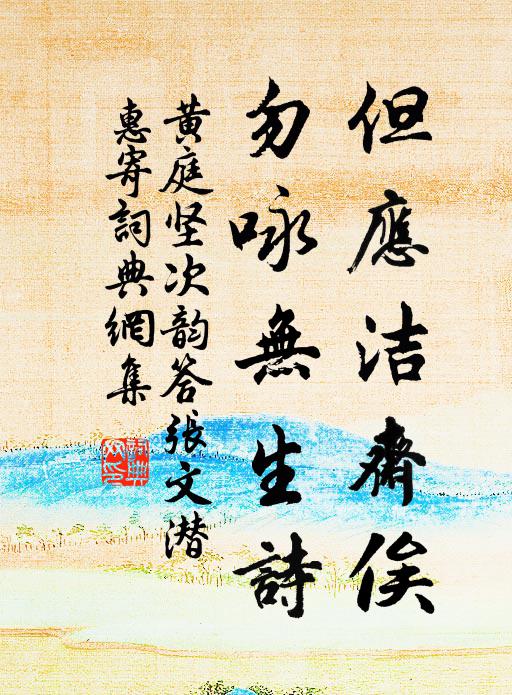 但應洁齋俟
勿咏無生詩
黄庭坚次韵答張文潜
惠寄詞典網集
詞典